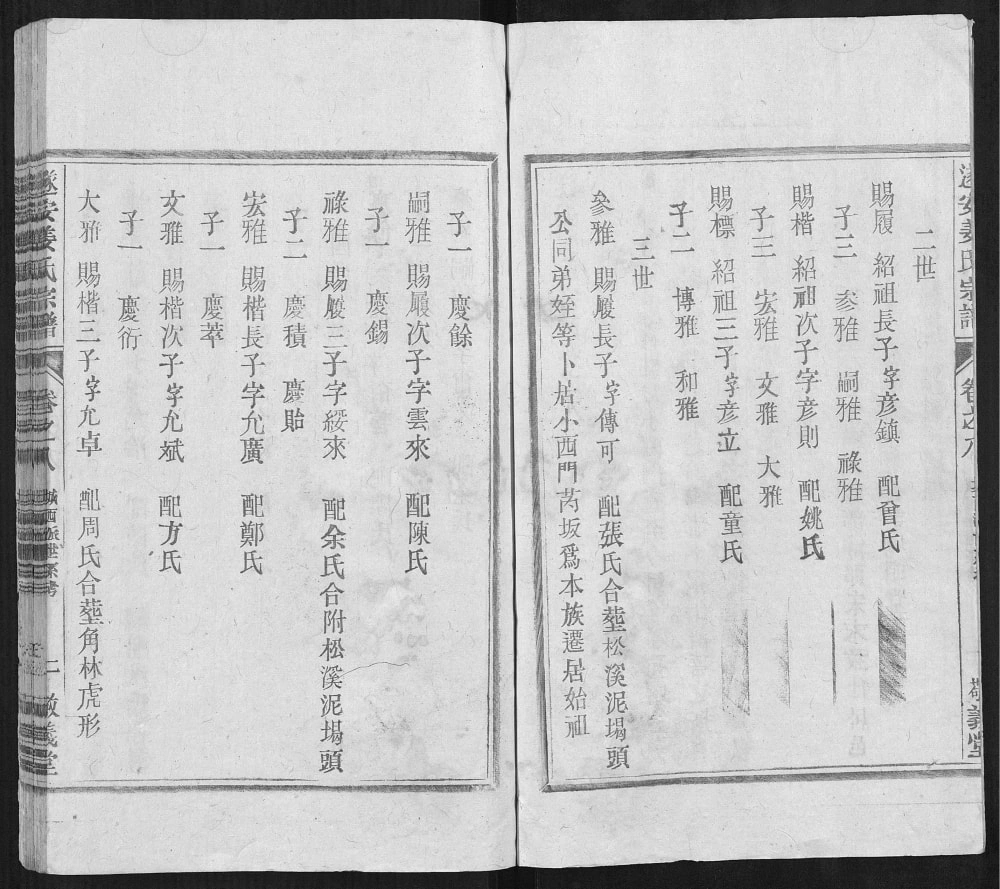 二世
賜履　紹祖長子字彦鎮　配曾氏
子三　參雅　嗣雅　祿雅
賜楷　紹祖次子字彦則　配姚氏
子三　宏雅　文雅　大雅
賜標　紹祖三子字彦立　配童氏
子二　博雅　和雅
三世
參雅　賜履長子字傳可　配張氏合塟松溪泥塲頭
公同弟姪等卜居小西門芮坂爲本族遷居始祖
子一　慶餘
嗣雅　賜履次子字雲來　配陳氏
子一　慶錫
祿雅　賜履三子字綬來　配余氏合附松溪泥塲頭
子二　慶積　慶貽
宏雅　賜楷長子字允廣　配鄭氏
子一　慶萃
文雅　賜楷次子字允斌　配方氏
子一　慶衍
大雅　賜楷三子字允卓　配周氏合塟角林虎形
遂安姜氏宗譜　卷之八　城西派世系考　二　敬義堂